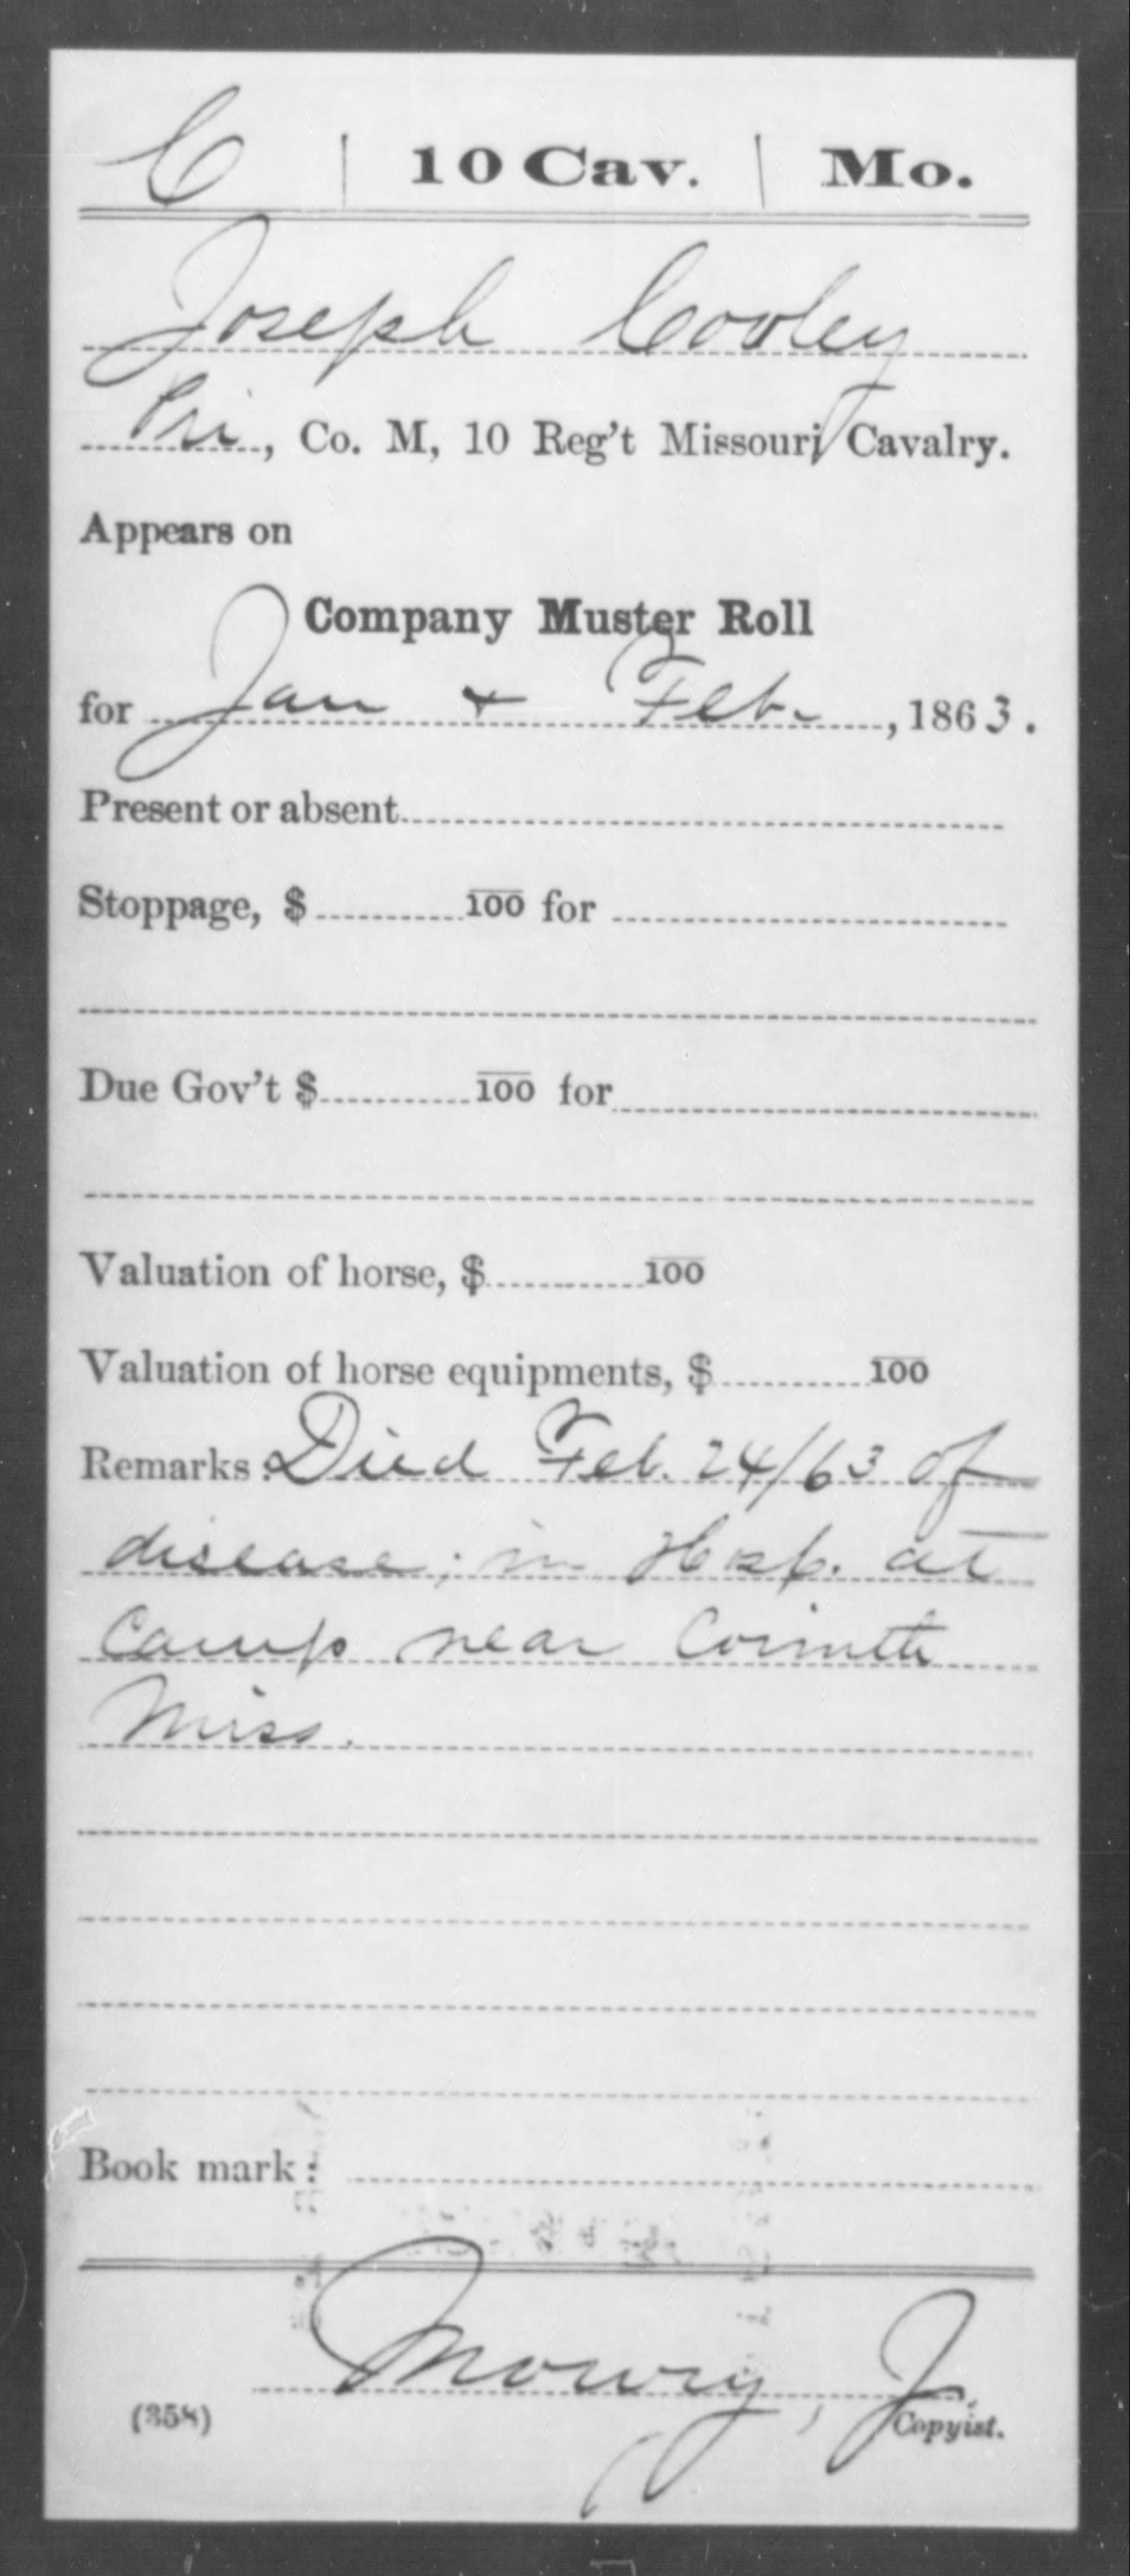 C | 10 Cav. | Mo.
Joseph Cooley
Pri, Co. M, 10 Reg't Missouri Cavalry.
Appears on
Company Muster Roll
for Jan + Feb., 1863.
Present or absent
Stoppage, $ 100 for
Due Gov't $ 100 for
Valuation of horse, $ 100
Valuation of horse equipments, $ 100
Remarks: Died Feb. 24/63 of
disease; in Hosp. at
Camp near Corinth
Miss.
Book mark:
Mowry, J.
(358) Copyist.